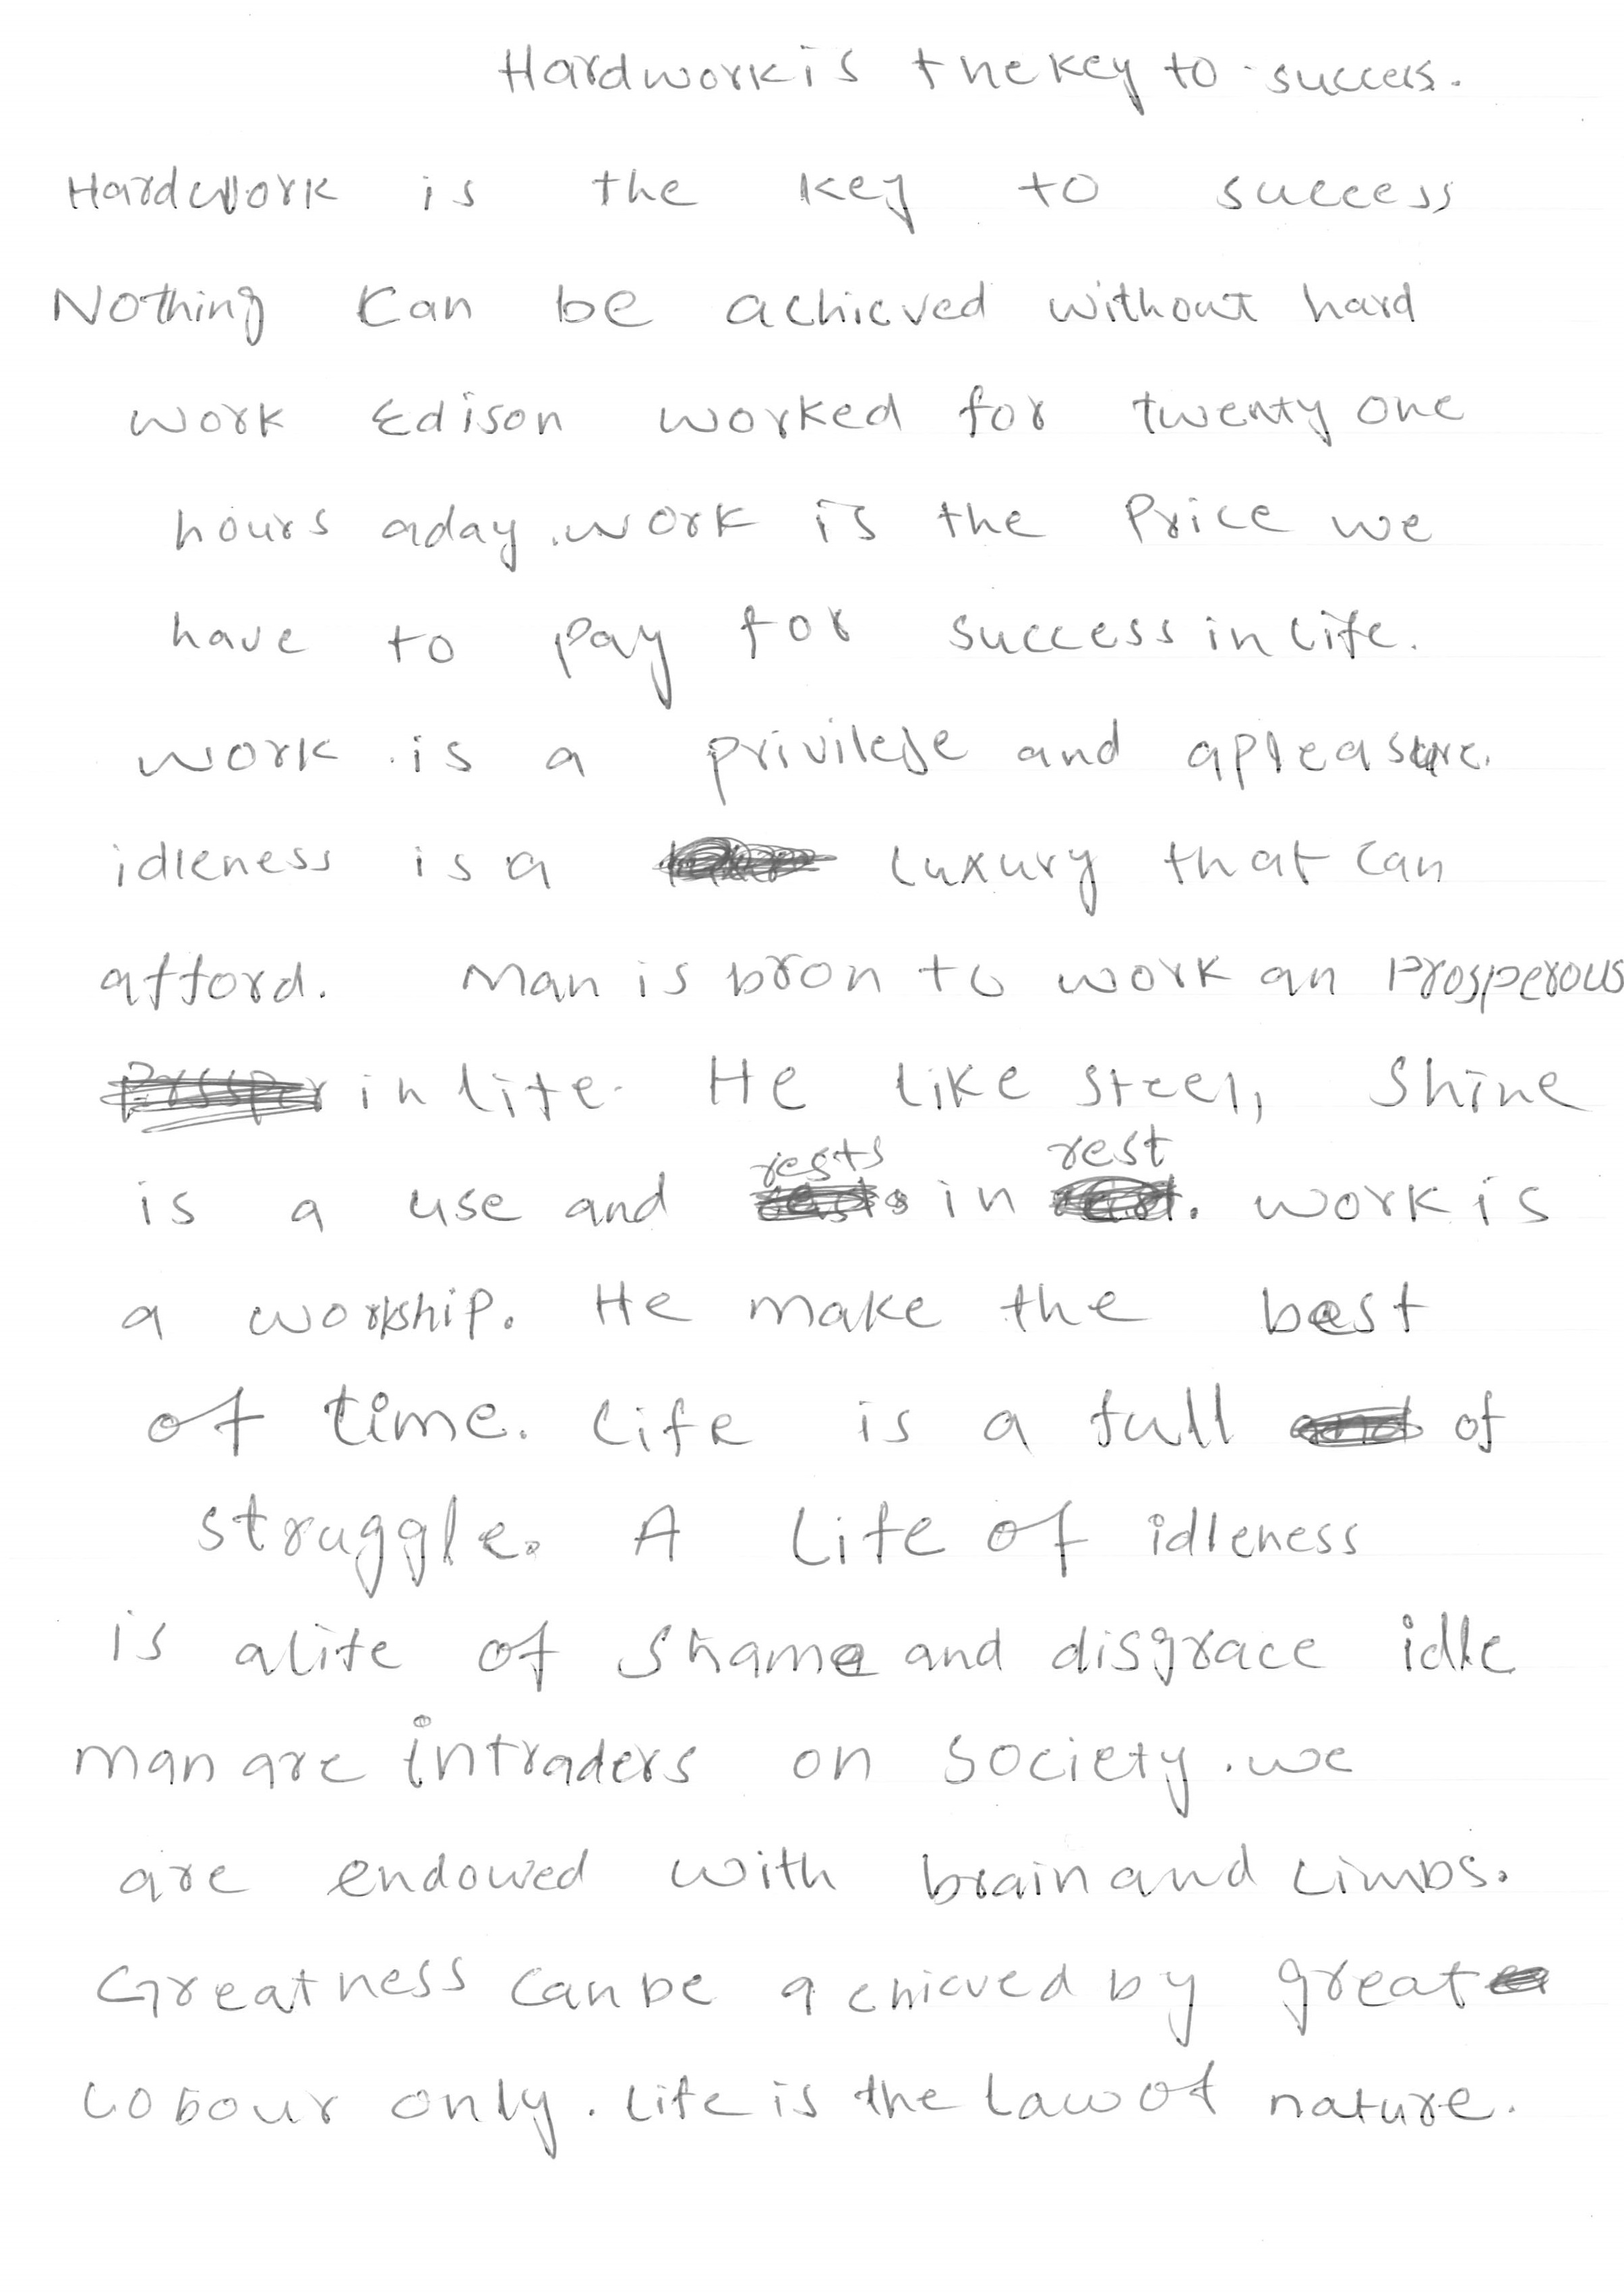 Hardwork is the key to success.
Hardwork is the key to success
Nothing Can be achieved without hard
work Edison worked for twenty one
hours aday. work is the Price we
have to pay for success in life.
work is a privilege and apleasure.
idleness is a luxury that can
afford. Man is bron to work an Prosperous
in life. He like steel, Shine
is a use and rests in rest. work is
a workship. He make the best
of time. Life is a full of
struggle. A Life of idleness
is alife of Shame and disgrace idle
man are intraders on society. we
are endowed with brain and Limbs.
Greatness can be achieved by great
Lobour only. Life is the Law of nature.